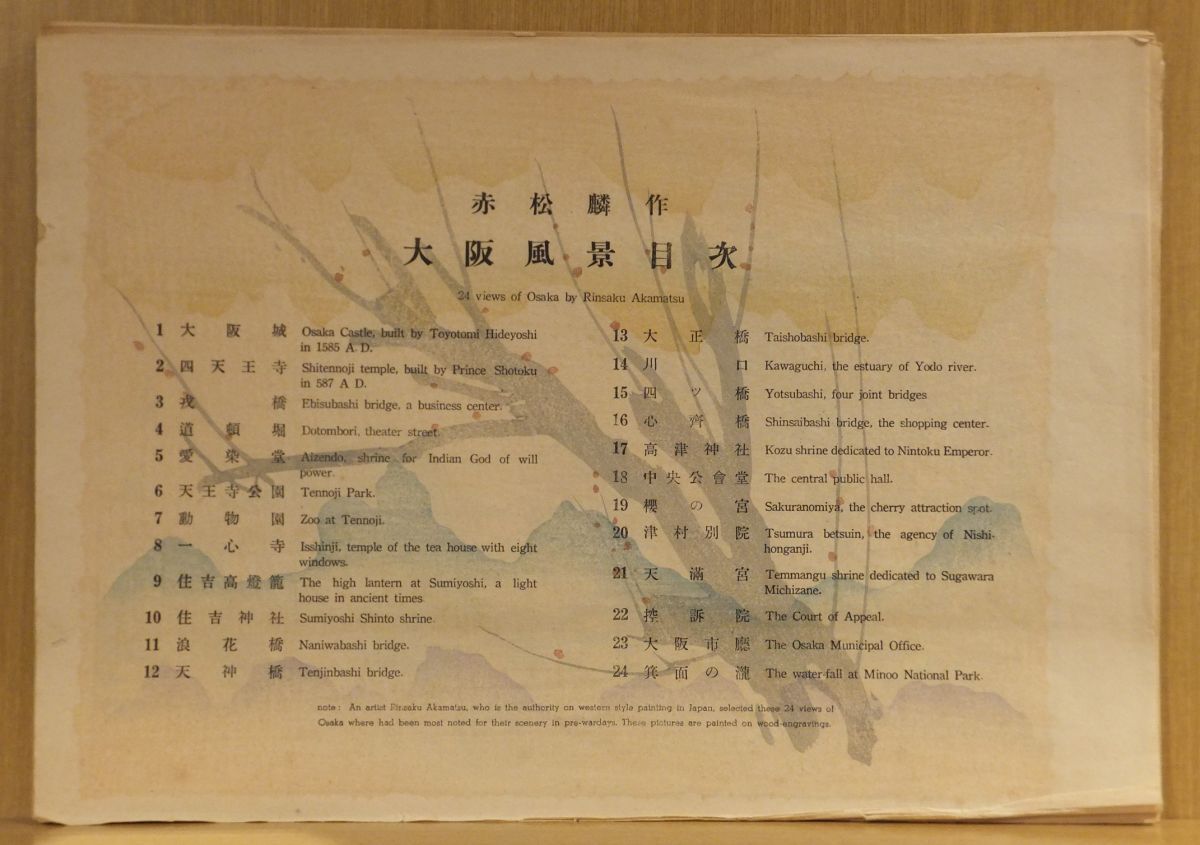 赤松麟作
大阪風景目次
24 views of Osaka by Rinsaku Akamatsu
1 大阪城 Osaka Castle, built by Toyotomi Hideyoshi
in 1585 A. D.
2 四天王寺 Shitennoji temple, built by Prince Shotoku
in 587 A D.
3 戎橋 Ebisubashi bridge, a business center.
4 道頓堀 Dotombori, theater street.
5 愛染堂 Aizendo, shrine for Indian God of will
power.
6 天王寺公園 Tennoji Park.
7 動物園 Zoo at Tennoji.
8 一心寺 Isshinji, temple of the tea house with eight
windows.
9 住吉高燈籠 The high lantern at Sumiyoshi, a light
house in ancient times.
10 住吉神社 Sumiyoshi Shinto shrine.
11 浪花橋 Naniwabashi bridge.
12 天神橋 Tenjinbashi bridge.
13 大正橋 Taishobashi bridge.
14 川口 Kawaguchi, the estuary of Yodo river.
15 四ッ橋 Yotsubashi, four joint bridges
16 心齊橋 Shinsaibashi bridge, the shopping center.
17 高津神社 Kozu shrine dedicated to Nintoku Emperor.
18 中央公會堂 The central public hall.
19 櫻の宮 Sakuranomiya, the cherry attraction spot.
20 津村別院 Tsumura betsuin, the agency of Nishi-
honganji.
21 天滿宮 Temmangu shrine dedicated to Sugawara
Michizane.
22 控訴院 The Court of Appeal.
23 大阪市廳 The Osaka Municipal Office.
24 箕面の瀧 The water-fall at Minoo National Park.
note : An artist Rinsaku Akamatsu, who is the authority on western style painting in Japan, selected these 24 views of
Osaka where had been most noted for their scenery in pre-wardays. These pictures are painted on wood-engravings.